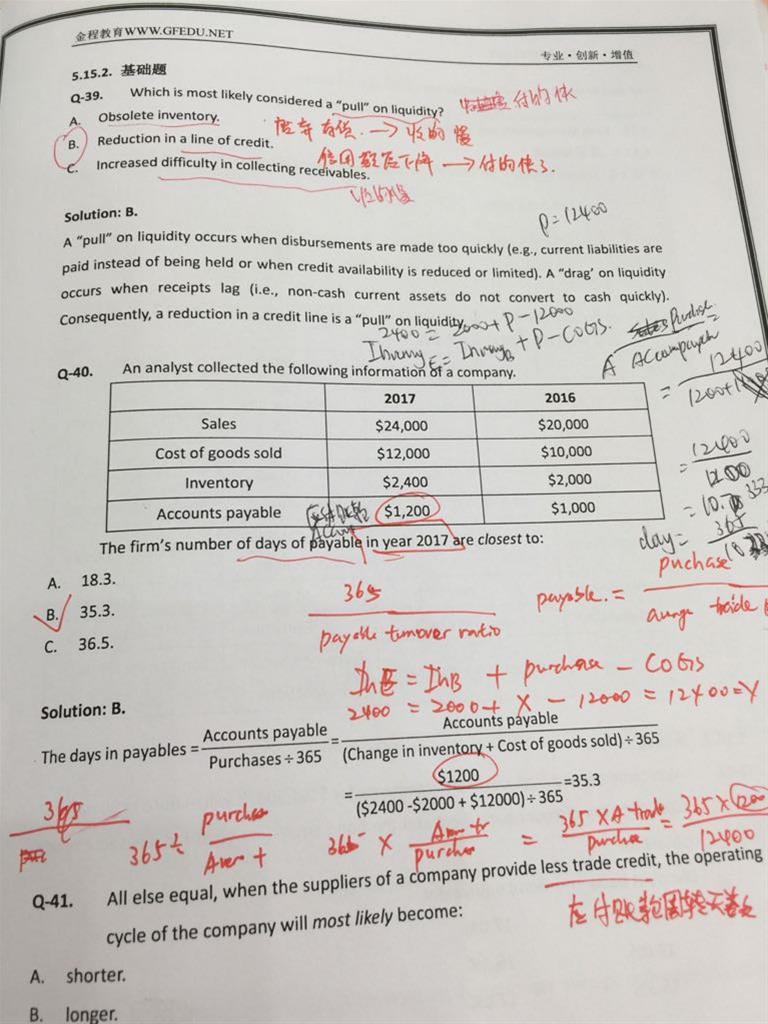 金程教育WWW.GFEDU.NET
专业·创新·增值
5.15.2. 基础题
Q-39. Which is most likely considered a "pull" on liquidity? 付的快
A. Obsolete inventory.
→ 收的慢
B. Reduction in a line of credit.
信用额度下降 → 付的快了.
C. Increased difficulty in collecting receivables.
收的慢
Solution: B.
P=12400
A "pull" on liquidity occurs when disbursements are made too quickly (e.g., current liabilities are
paid instead of being held or when credit availability is reduced or limited). A "drag' on liquidity
occurs when receipts lag (i.e., non-cash current assets do not convert to cash quickly).
Consequently, a reduction in a credit line is a "pull" on liquidity.
2400 = 2000 + P - 12000
+ P - COGS.
Q-40. An analyst collected the following information of a company.
12400
2017 2016
Sales $24,000 $20,000
Cost of goods sold $12,000 $10,000
Inventory $2,400 $2,000
Accounts payable $1,200 $1,000
= 12400
day= 365
The firm's number of days of payable in year 2017 are closest to:
A. 18.3.
B. 35.3.
C. 36.5.
365
payable turnover ratio
payable. = puchase
trade
InE = InB + purchase - COGS
2400 = 2000 + X - 12000 = 12400=Y
Solution: B.
The days in payables = Accounts payable / Purchases ÷ 365 = Accounts payable / (Change in inventory + Cost of goods sold) ÷ 365
= $1200 / ($2400 -$2000 + $12000) ÷ 365 =35.3
365
365 ÷
365 ×
= 365 × A trade
= 365 × 1200 / 12400
Q-41. All else equal, when the suppliers of a company provide less trade credit, the operating
cycle of the company will most likely become:
应付账款周转天数
A. shorter.
B. longer.